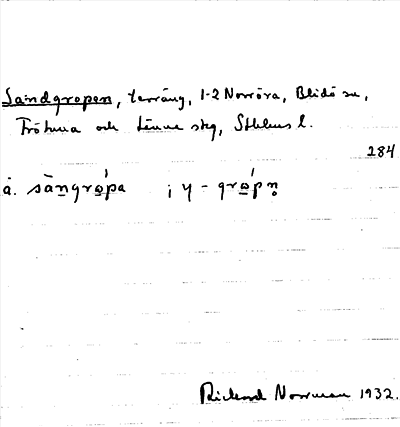 Sandgropen, terräng, 1-2 Norröra, Blidö sn,
Frötuna och Länna skg, Sthlms l.
284
å. sàngro̲pa ; y - gro̲pn̥
Rickard Norrman 1932.